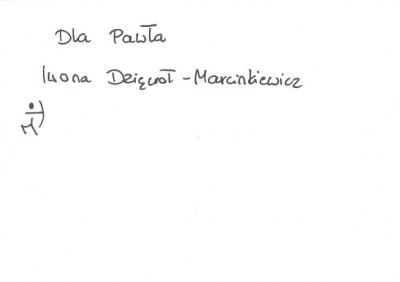 Dla Pawła
Iwona Dzięcioł-Marcinkiewicz